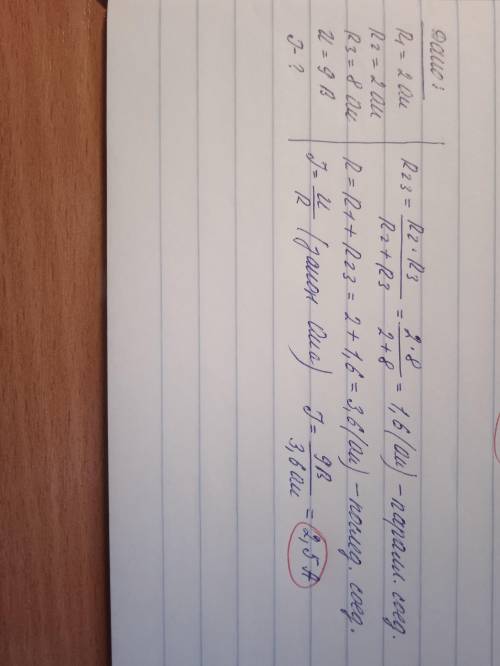 Дано:
R1 = 2 Ом
R2 = 2 Ом
R3 = 8 Ом
U = 9 В
J - ?
R23 = R2 · R3 / R2 + R3 = 2 · 8 / 2 + 8 = 1,6 (Ом) - паралл. соед.
R = R1 + R23 = 2 + 1,6 = 3,6 (Ом) - послед. соед.
J = U / R (закон Ома) J = 9 В / 3,6 Ом = 2,5 А